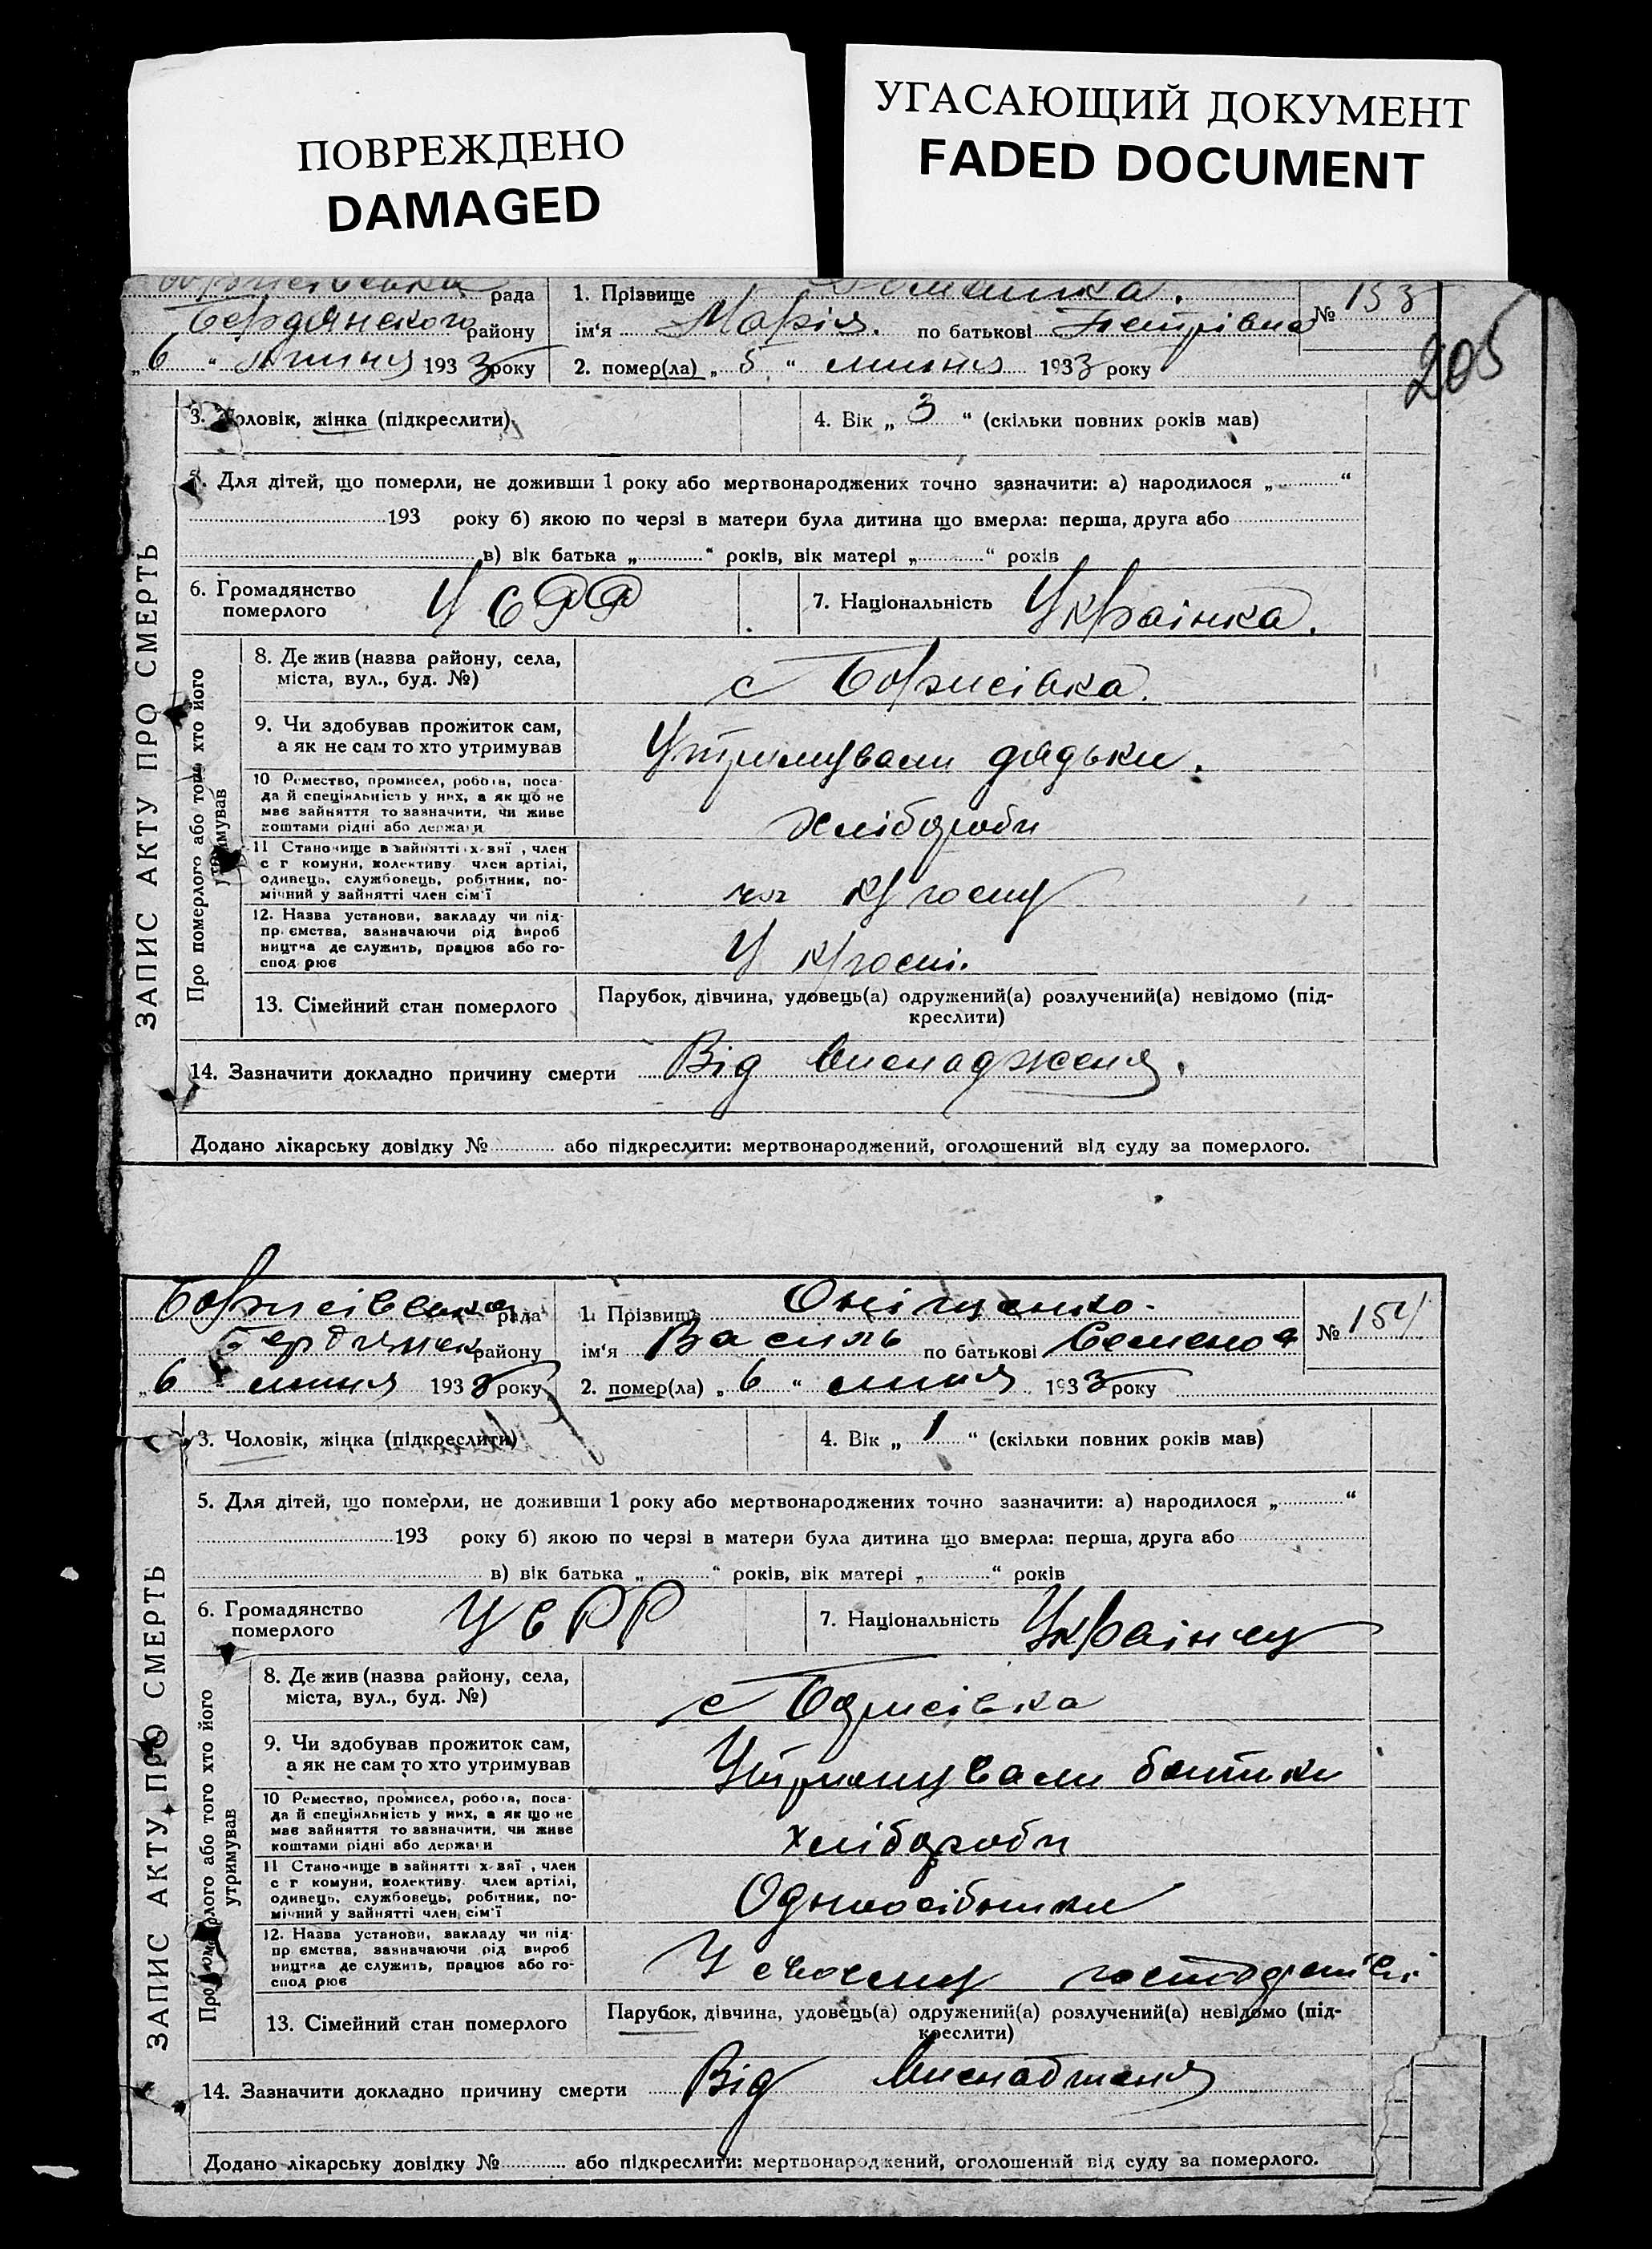 ПОВРЕЖДЕНО
DAMAGED
УГАСАЮЩИЙ ДОКУМЕНТ
FADED DOCUMENT
рада
1. Прізвище
№ 153
Бердянского району
ім‘я Марія. по батькові Петрівна
„6“ липня 1933 року
2. помер(ла) „5“ липня 1933 року
205
3. Чоловік, жінка (підкреслити)
4. Вік „3“ (скільки повних років мав)
5. Для дітей, що померли, не доживши 1 року або мертвонароджених точно зазначити: а) народилося „ “
193 року б) якою по черзі в матери була дитина що вмерла: перша, друга або
в) вік батька „ “ років, вік матері „ “ років
6. Громадянство
померлого
УСРР
7. Національність Українка.
ЗАПИС АКТУ ПРО СМЕРТЬ
Про померлого або того хто його
утримував
8. Де жив (назва району, села,
міста, вул., буд. №)
с Борисівка.
9. Чи здобував прожиток сам,
а як не сам то хто утримував
Утримували дядьки.
10 Ремество, промисел, робота, поса-
да й спеціяльність у них, а як що не
має зайняття то зазначити, чи живе
коштами рідні або держави
Хлібороби
11 Становище в зайнятті х-зяї , член
с г комуни, колективу член артілі,
одинець, службовець, робітник, по-
мічний у зайнятті член сім‘ї
чл к/госпу
12. Назва установи, закладу чи під-
пр ємства, зазначаючи рід вироб
ництва де служить, працює або го-
спод рює
У к/госпі.
13. Сімейний стан померлого
Парубок, дівчина, удовець(а) одружений(а) розлучений(а) невідомо (під-
креслити)
14. Зазначити докладно причину смерти Від виснадженя.
Додано лікарську довідку № або підкреслити: мертвонароджений, оголошений від суду за померлого.
Борисівська рада
1. Прізвище Оніщенко.
№ 154
Бердянск району
ім‘я Василь по батькові Семенов
„6“ липня 1933 року
2. помер(ла) „6“ липня 1933 року
3. Чоловік, жінка (підкреслити)
4. Вік „1“ (скільки повних років мав)
5. Для дітей, що померли, не доживши 1 року або мертвонароджених точно зазначити: а) народилося „ “
193 року б) якою по черзі в матери була дитина що вмерла: перша, друга або
в) вік батька „ “ років, вік матері „ “ років
6. Громадянство
померлого
УСРР
7. Національність Українец
ЗАПИС АКТУ ПРО СМЕРТЬ
Про померлого або того хто його
утримував
8. Де жив (назва району, села,
міста, вул., буд. №)
с Борисівка
9. Чи здобував прожиток сам,
а як не сам то хто утримував
Утримували батьки
10 Ремество, промисел, робота, поса-
да й спеціяльність у них, а як що не
має зайняття то зазначити, чи живе
коштами рідні або держави
хлібороби
11 Становище в зайнятті х-зяї , член
с г комуни, колективу член артілі,
одинець, службовець, робітник, по-
мічний у зайнятті член сім‘ї
Одноосібники
12. Назва установи, закладу чи під-
пр ємства, зазначаючи рід вироб
ництва де служить, працює або го-
спод рює
У своєму господарстві
13. Сімейний стан померлого
Парубок, дівчина, удовець(а) одружений(а) розлучений(а) невідомо (під-
креслити)
14. Зазначити докладно причину смерти Від виснадженя
Додано лікарську довідку № або підкреслити: мертвонароджений, оголошений від суду за померлого.